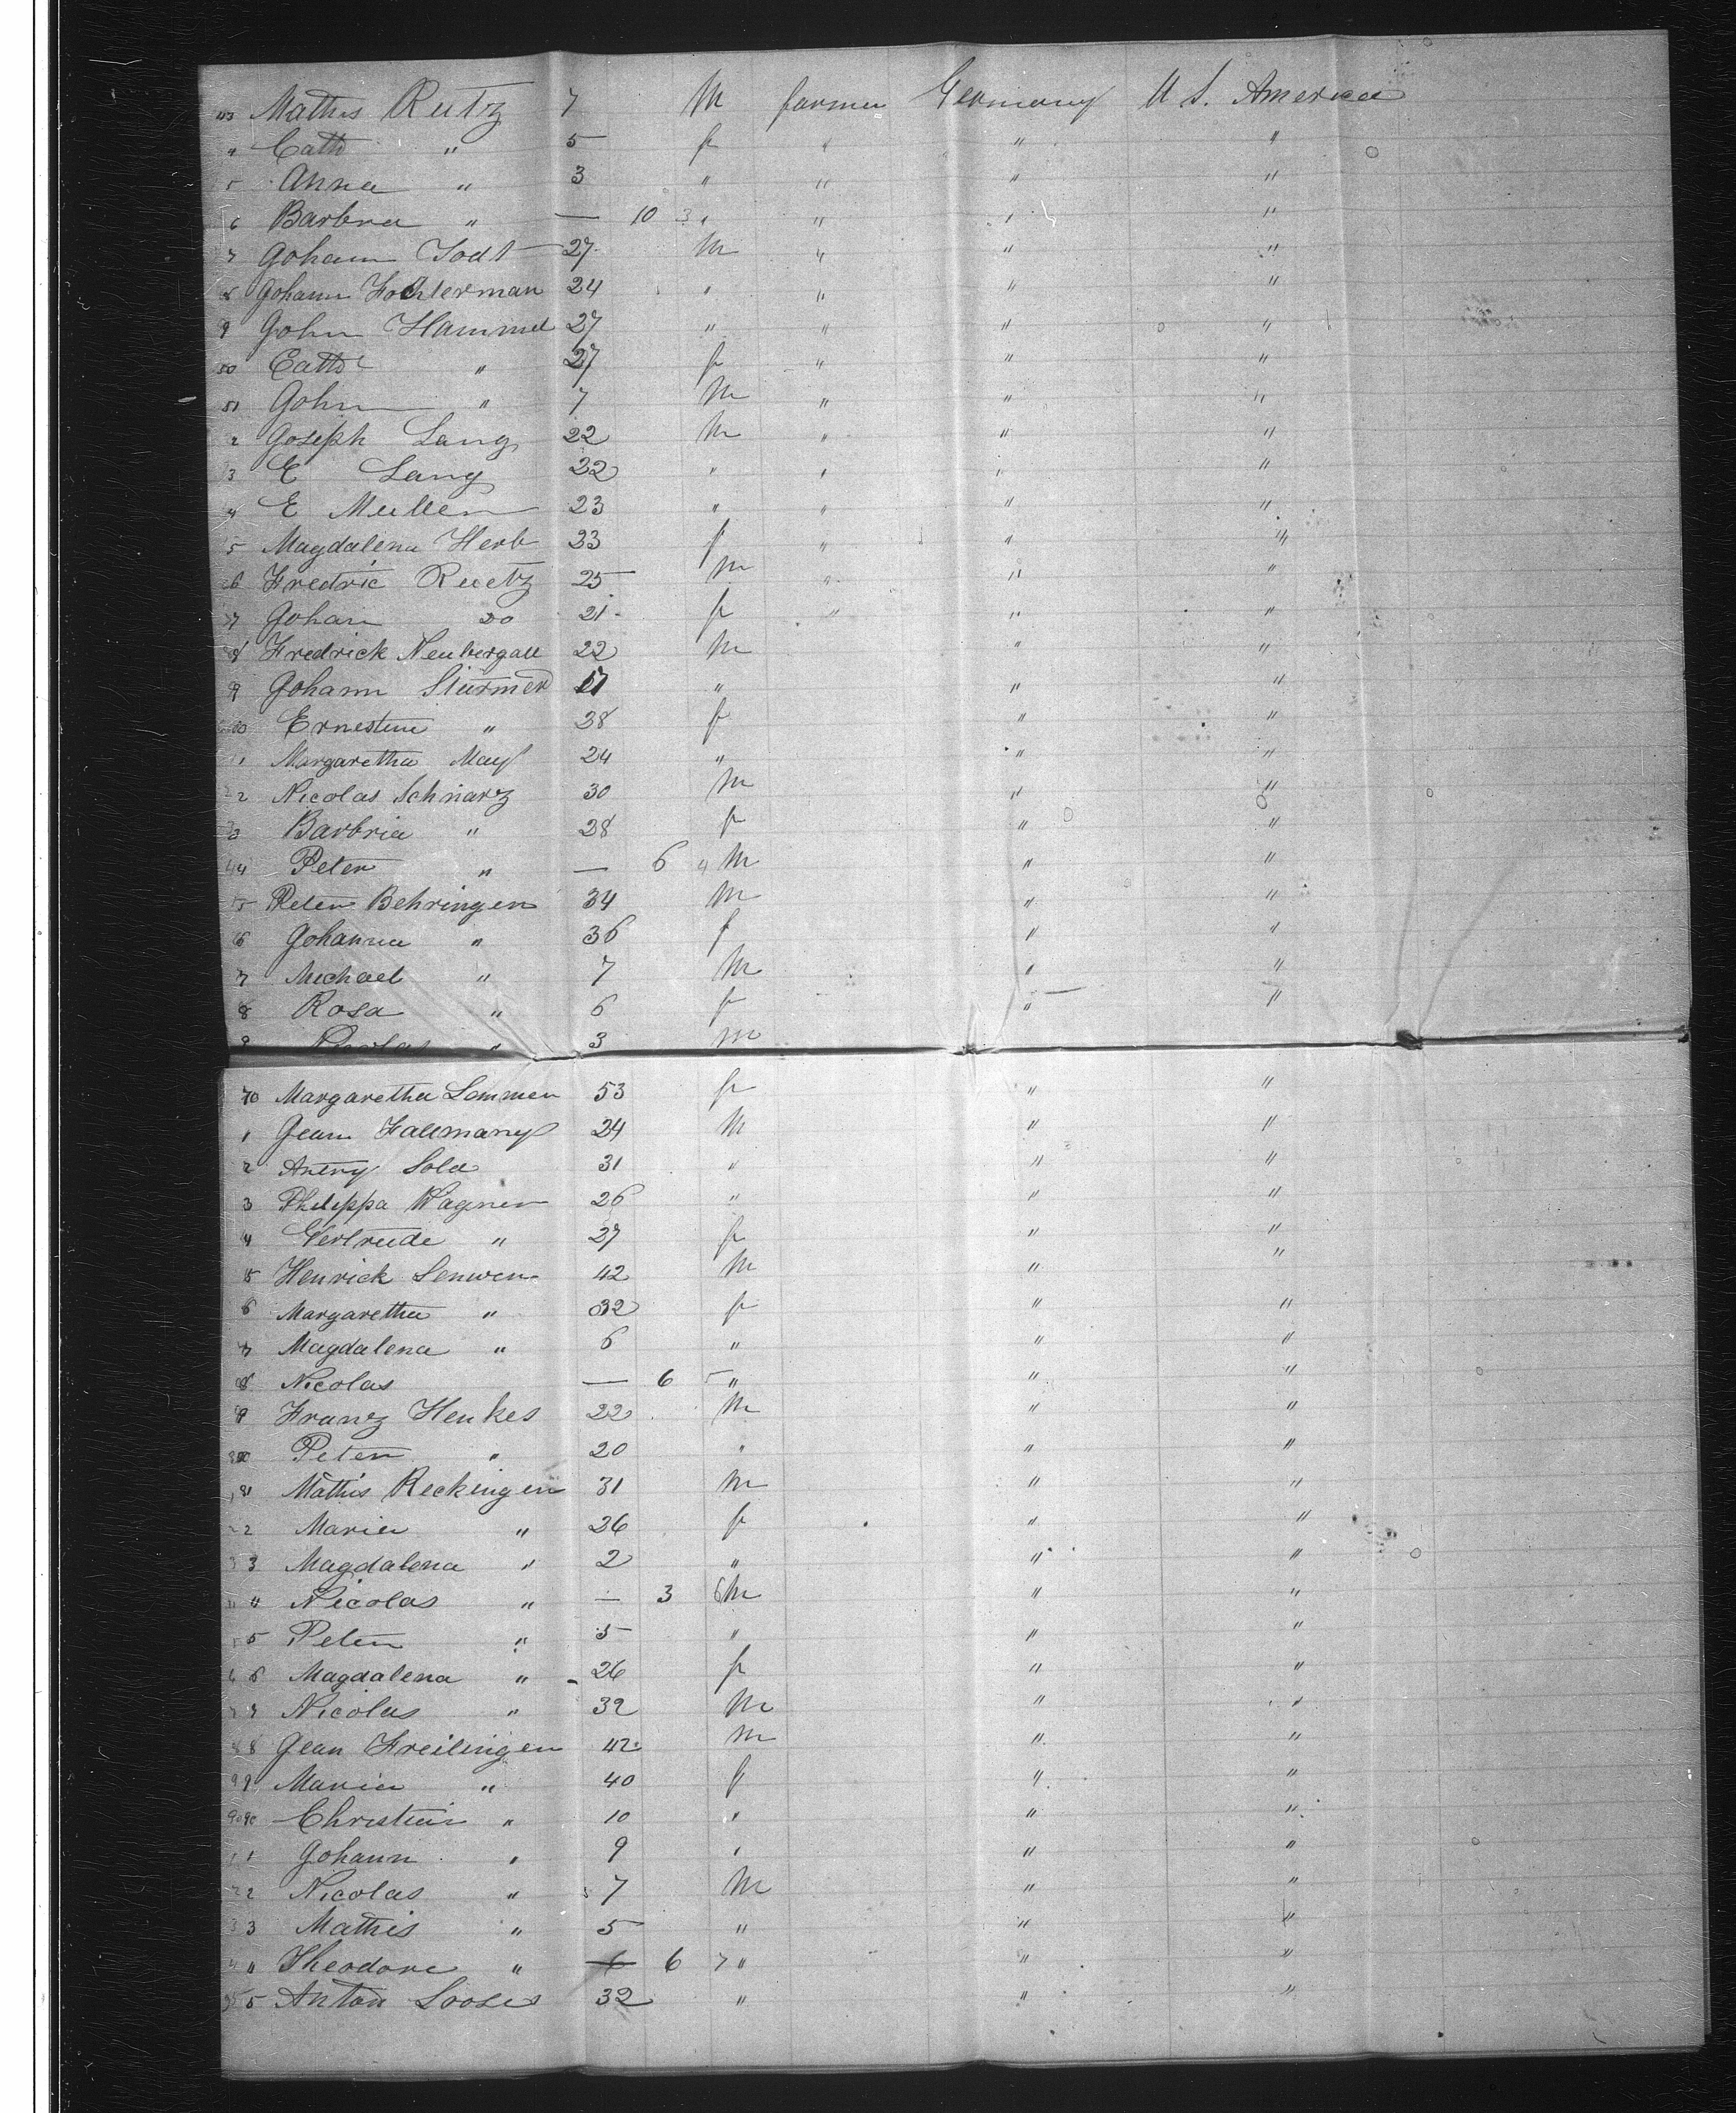 43 Mathis Reetz 7 M farmer Germany U S. America
4 Cath " 5 f " " "
5 Anna " 3 " " " "
6 Barbra " — 10 3 " " " "
7 Gohann Todt 27 M " " "
8 Gohann Fochlerman 24 " " " "
9 Gohn Hammel 27 " " " "
50 Cath " 27 f " " "
51 Gohn " 7 M " " "
2 Goseph Lang 22 M " " "
3 E Lang 22 " " " "
4 E Mullen 23 " " " "
5 Magdalena Herb 23 f " " "
6 Fredric Reetz 25 M " " "
7 Gohan Do 21 f " " "
8 Fredrick Neubergall 22 M " "
9 Gohann Sturmer 17 " " "
60 Ernestine " 38 f " "
1 Margaretha May 24 " " "
2 Nicolas Schwarz 30 M " "
3 Barbria " 28 f " "
4 Peter " — 6 4 M " "
5 Peter Behringen 34 M " "
6 Gohanna " 36 f " "
7 Michael " 7 M " "
8 Rosa " 6 f " "
9 " 3 M
70 Margaretha Lemmen 53 f " "
1 Gean Fallmany 24 M " "
2 Antny Sold 31 " " "
3 Philippa Wagner 26 " " "
4 Gertrude " 27 f " "
75 Henrick Lenwen 42 M " "
6 Margaretha " 32 f " "
7 Magdalena " 6 " " "
8 Nicolas — 6 5 " " "
9 Franz Henkes 22 M " "
80 Peter " 20 " " "
81 Mathis Reckingen 31 M " "
2 Maria " 26 f " "
3 3 Magdalena " 2 " " "
4 " Nicolas " — 3 6 M " "
5 5 Peter " 5 " " "
6 6 Magdalena " 26 f " "
7 7 Nicolas " 32 M " "
8 8 Gean Freilingen 42 M " "
9 9 Maria " 40 f " "
90 90 Christian " 10 " " "
1 1 Gohann " 9 " " "
2 2 Nicolas " 7 M " "
3 3 Mathis " 5 " " "
4 " Theodore " 6 6 7 " " "
95 5 Anton Looses 32 " " "